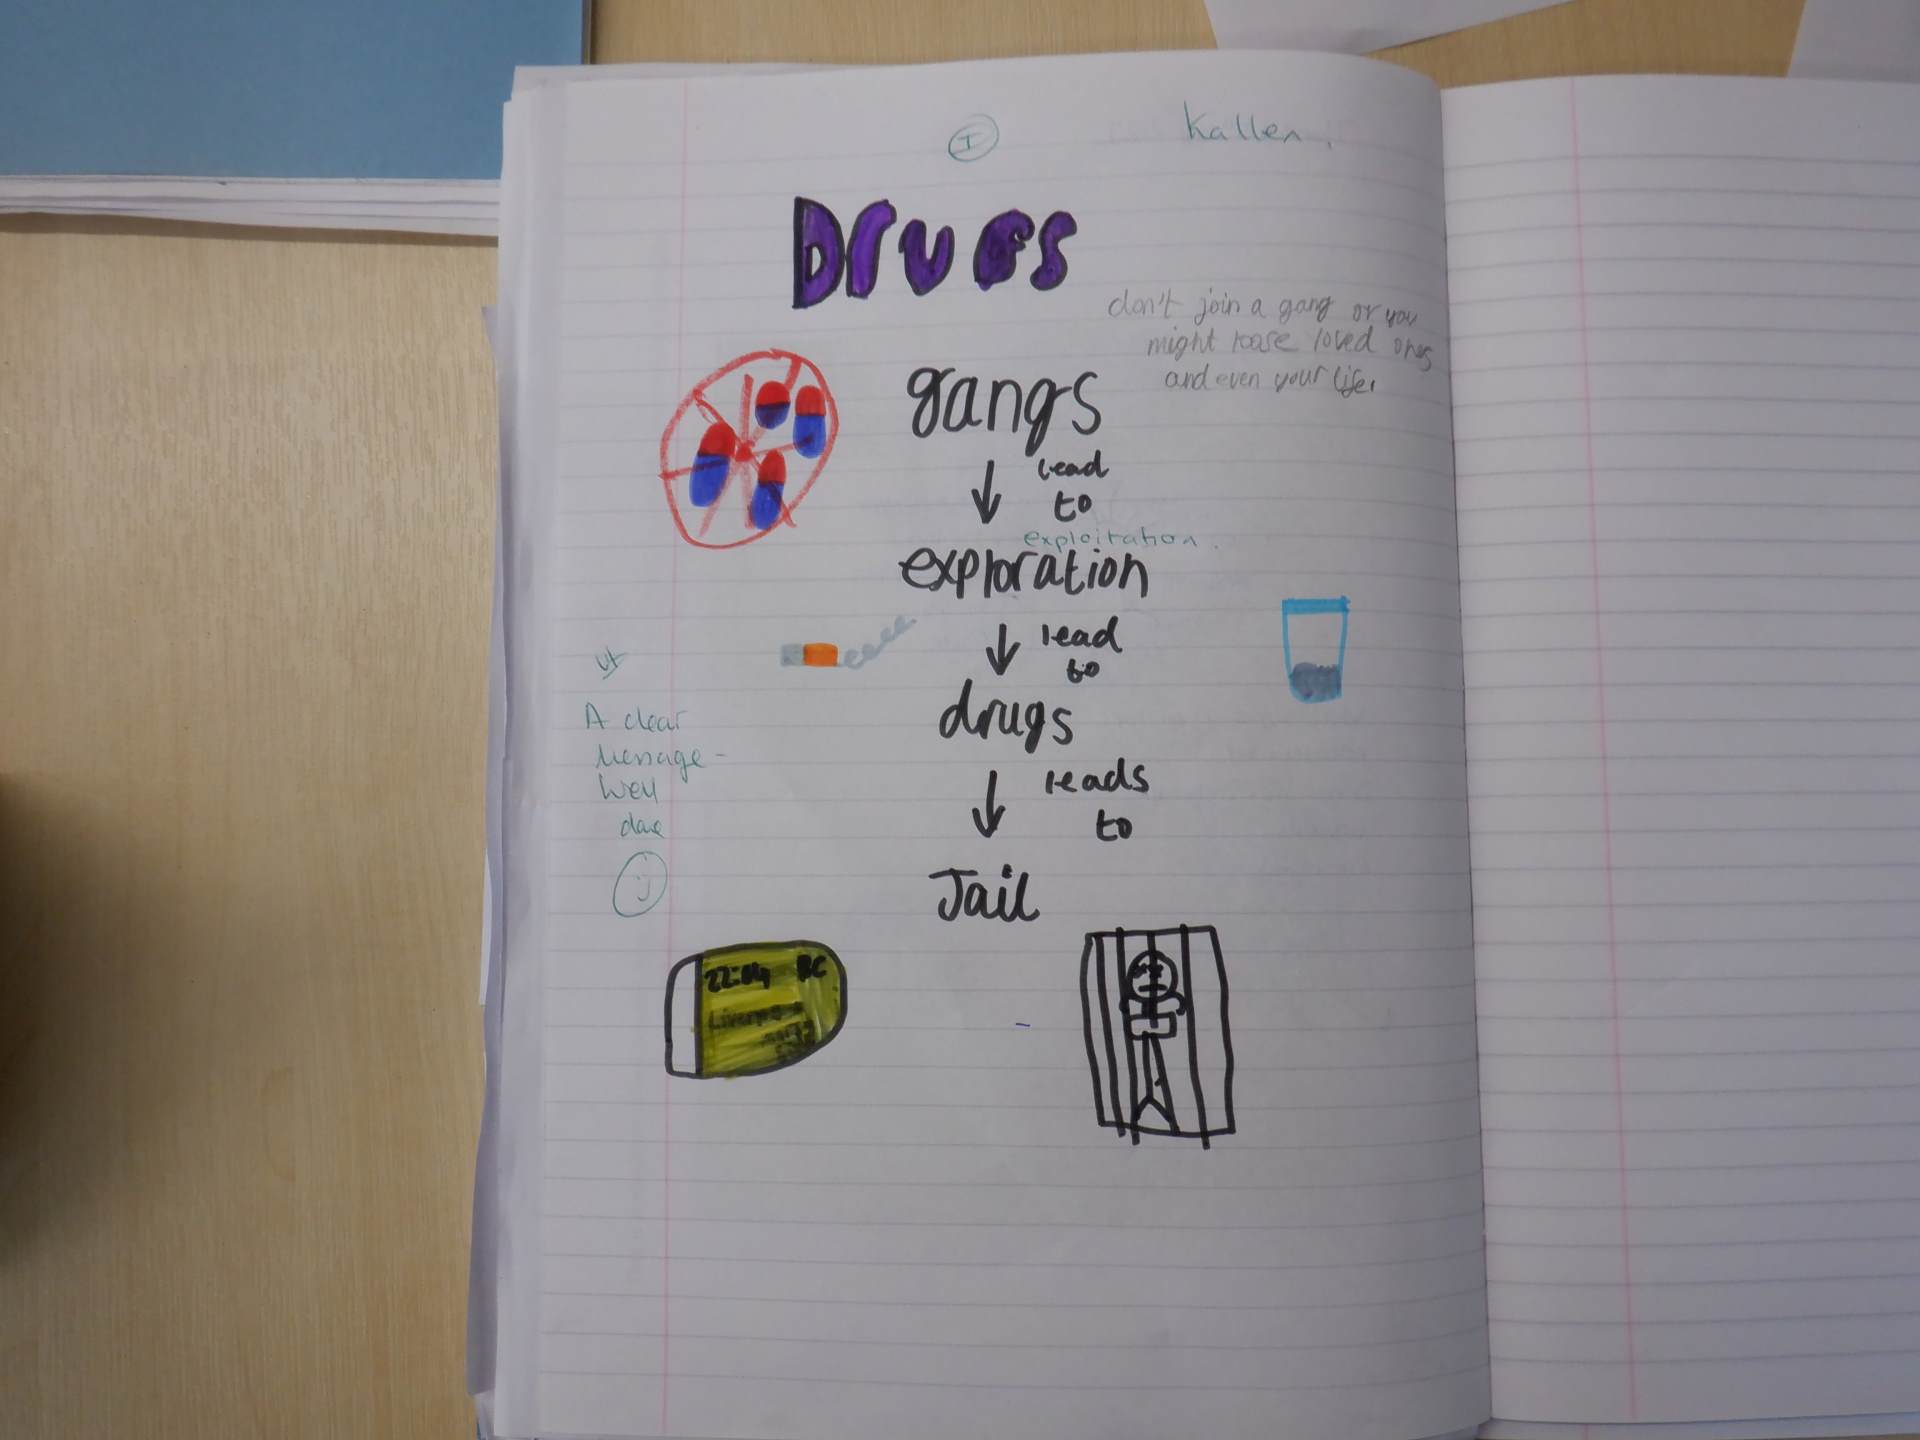 I
Kallen.
DrUGS
don't join a gang or you
might loose loved ones
and even your life.
gangs
lead
to
exploitation.
exploration
lead
to
drugs
A clear
message -
Well
done
leads
to
Jail